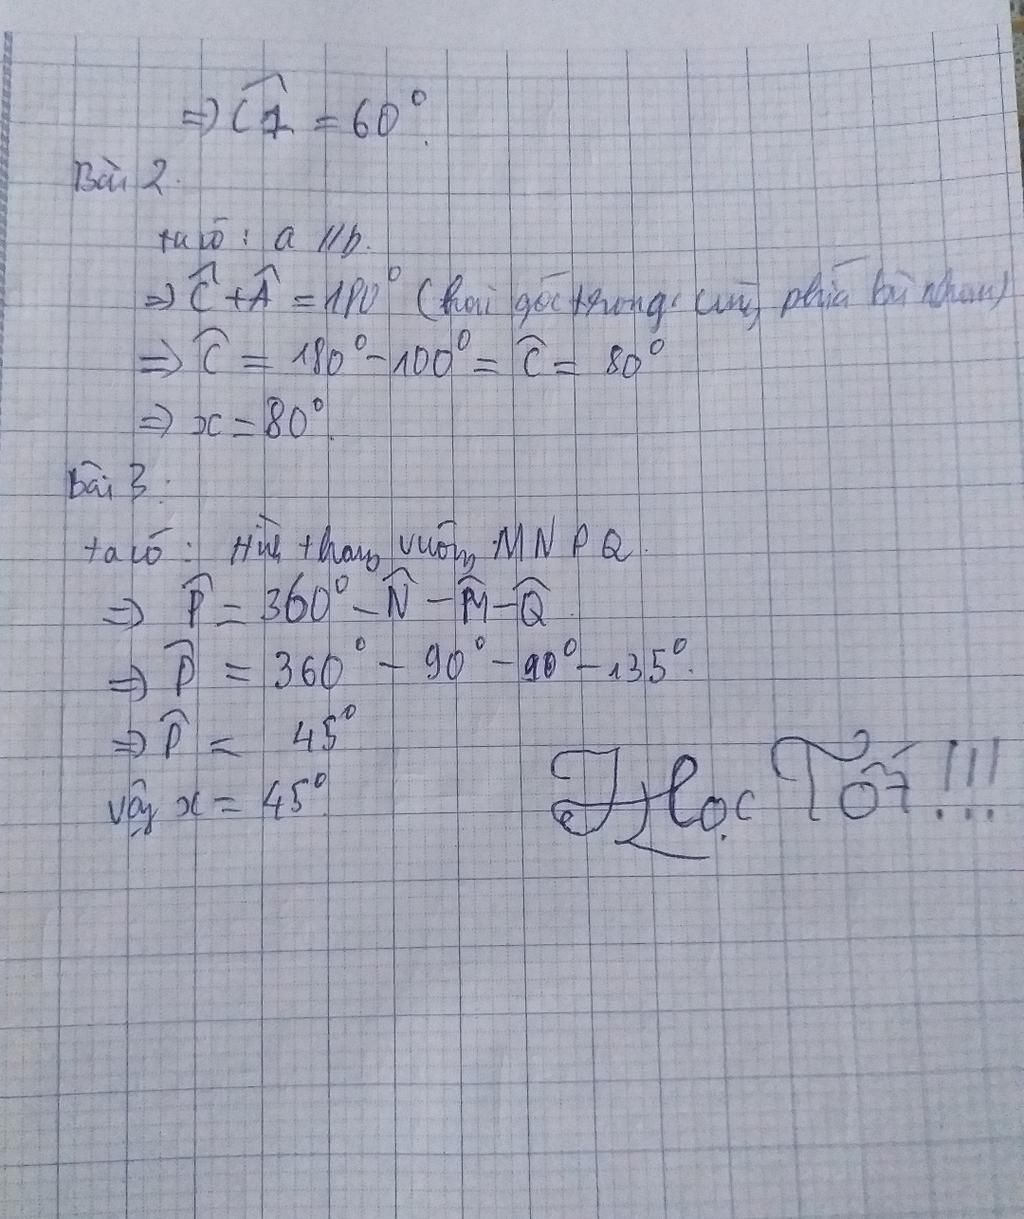 ⇒ Ĉ1 = 60°.
Bài 2.
ta có: a // b.
⇒ Ĉ + Â = 180° (hai góc trong cùng phía bù nhau)
⇒ Ĉ = 180° - 100° = Ĉ = 80°
⇒ x = 80°.
Bài 3:
ta có: Hình thang vuông MNPQ.
⇒ P̂ = 360° - N̂ - M̂ - Q̂.
⇒ P̂ = 360° - 90° - 90° - 135°.
⇒ P̂ = 45°
vậy x = 45°.
Học Tốt!!!